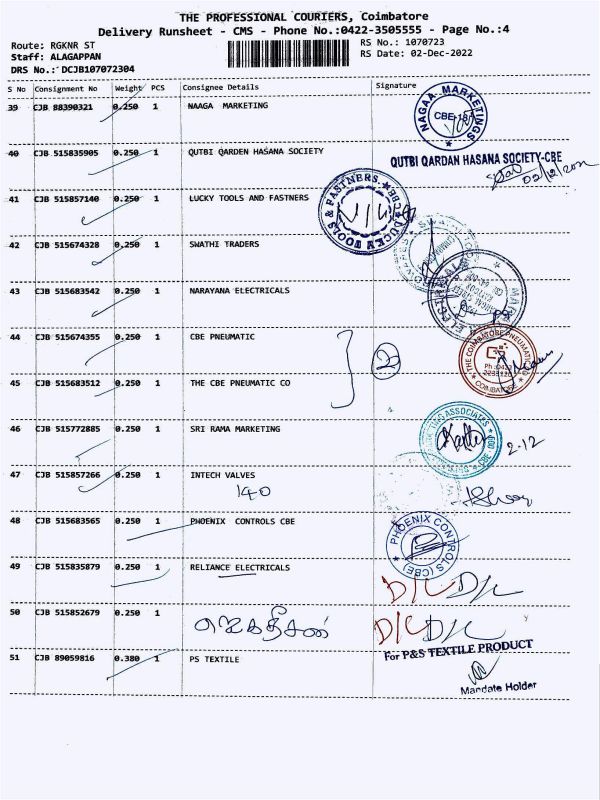 THE PROFESSIONAL COURIERS, Coimbatore
Delivery Runsheet - CMS - Phone No.:0422-3505555 - Page No.:4
Route: RGKNR ST
RS No.: 1070723
Staff: ALAGAPPAN
RS Date: 02-Dec-2022
DRS No.: DCJB107072304
S No Consignment No Weight PCS Consignee Details Signature
39 CJB 88390321 0.250 1 NAAGA MARKETING
NAGAA MARKETINGS
CBE-18
40 CJB 515835905 0.250 1 QUTBI QARDEN HASANA SOCIETY
QUTBI QARDAN HASANA SOCIETY-CBE
02/12/2022
41 CJB 515857140 0.250 1 LUCKY TOOLS AND FASTNERS
LUCKY TOOLS & FASTNERS
42 CJB 515674328 0.250 1 SWATHI TRADERS
43 CJB 515683542 0.250 1 NARAYANA ELECTRICALS
44 CJB 515674355 0.250 1 CBE PNEUMATIC
2
THE COIMBATORE PNEUMATIC
COIMBATORE
45 CJB 515683512 0.250 1 THE CBE PNEUMATIC CO
46 CJB 515772885 0.250 1 SRI RAMA MARKETING
2-12
47 CJB 515857266 0.250 1 INTECH VALVES
140
48 CJB 515683565 0.250 1 PHOENIX CONTROLS CBE
PHOENIX CONTROLS (CBE)
49 CJB 515835879 0.250 1 RELIANCE ELECTRICALS
D/L D/L
50 CJB 515852679 0.250 1
ஜெகதீசன்
D/L D/L
51 CJB 89059816 0.380 1 PS TEXTILE
For P&S TEXTILE PRODUCT
Mandate Holder